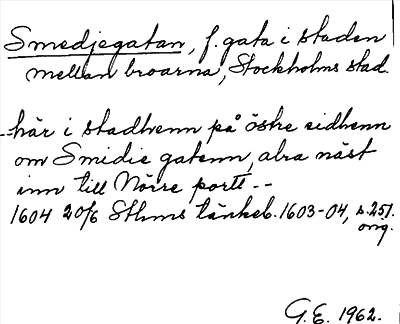 Smedjegatan, f. gata i staden
mellan broarna, Stockholms stad.
- här i stadhenn på östre sidhenn
om Smidie gatenn, alra näst
inn till Nörre portt --
1604 20/6 Sthms tänkeb. 1603-04, s. 251.
orig.
G. E. 1962.